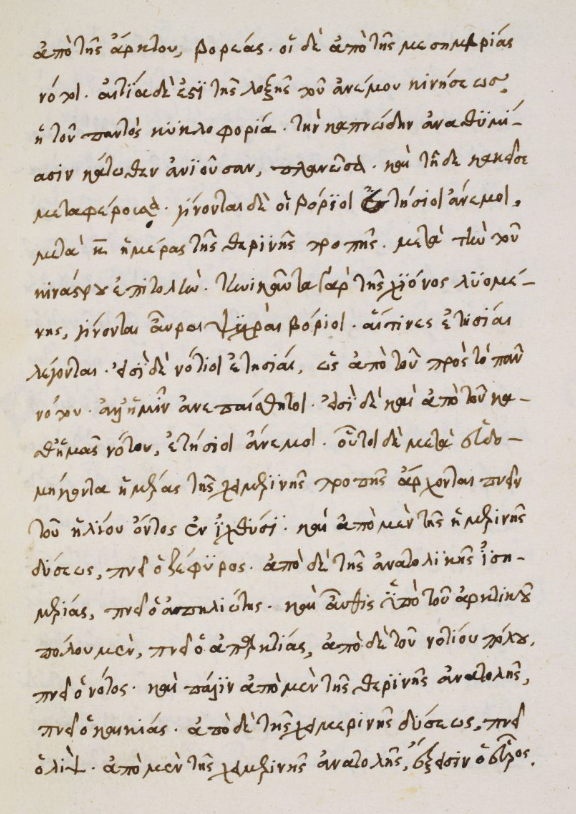 ἀπὸ τῆς ἄρκτου, βορέας. οἱ δὲ ἀπὸ τῆς μεσημβρίας
νότοι. αἰτία δὲ ἐστὶ τῆς λοξῆς τοῦ ἀνέμου κινήσεως,
ἡ τοῦ παντὸς κυκλοφορία. τὴν καπνώδην ἀναθυμί-
ασιν κάτωθεν ἀνιοῦσαν,
μεταφέρουσα. γίνονται δὲ οἱ βόρϊοι ἐτήσιοι ἄνεμοι,
μετὰ κ ἡμέρας τῆς θερινῆς τροπῆς. μετὰ τὴν τοῦ
κυνάστρου ἐπιτολὴν. τηνικαῦτα γὰρ τῆς χϊόνος λϋομέ-
νης, γίνονται αὖραι ψϋχραὶ βόριοι. ἅστινες ἐτησίαι
λέγονται. εἰσὶ δὲ νότιοι ἐτησίαι, ὡς ἀπὸ τοῦ πρὸς τὸ πᾶν
νότου. ἀλλ' ἡμῖν ἀνεπαίσθητοι. εἰσὶ δὲ καὶ ἀπὸ τοῦ κα-
θ' ἡμᾶς νότου, ἐτήσιοι ἄνεμοι. οὗτοι δὲ μετὰ ἑβδο-
μήκοντα ἡμέρας τῆς χειμερϊνῆς τροπῆς ἄρχονται πνεῖν
τοῦ ἡλίου ὄντος ἐν ἰχθύσϊ. καὶ ἀπὸ μὲν τῆς ἡμερινῆς
δύσεως, πνεῖ ὁ ζέφϋρος. ἀπὸ δὲ τῆς ἀνατολϊκῆς ἰση-
μερίας, πνεῖ ὁ ἀπηλιώτης. καὶ αὖθις ἀπὸ τοῦ ἀρκτικοῦ
πόλου μὲν, πνεῖ ὁ ἀπαρκτίας, ἀπὸ δὲ τοῦ νοτίου πόλου,
πνεῖ ὁ νότος. καὶ πάλϊν ἀπὸ μὲν τῆς θερϊνῆς ἀνατολῆς,
πνεῖ ὁ καικίας. ἀπὸ δὲ τῆς χειμερινῆς δύσεως, πνεῖ
ὁ λίψ. ἀπὸ μὲν τῆς χειμερινῆς ἀνατολῆς, ὁ εὖρος.